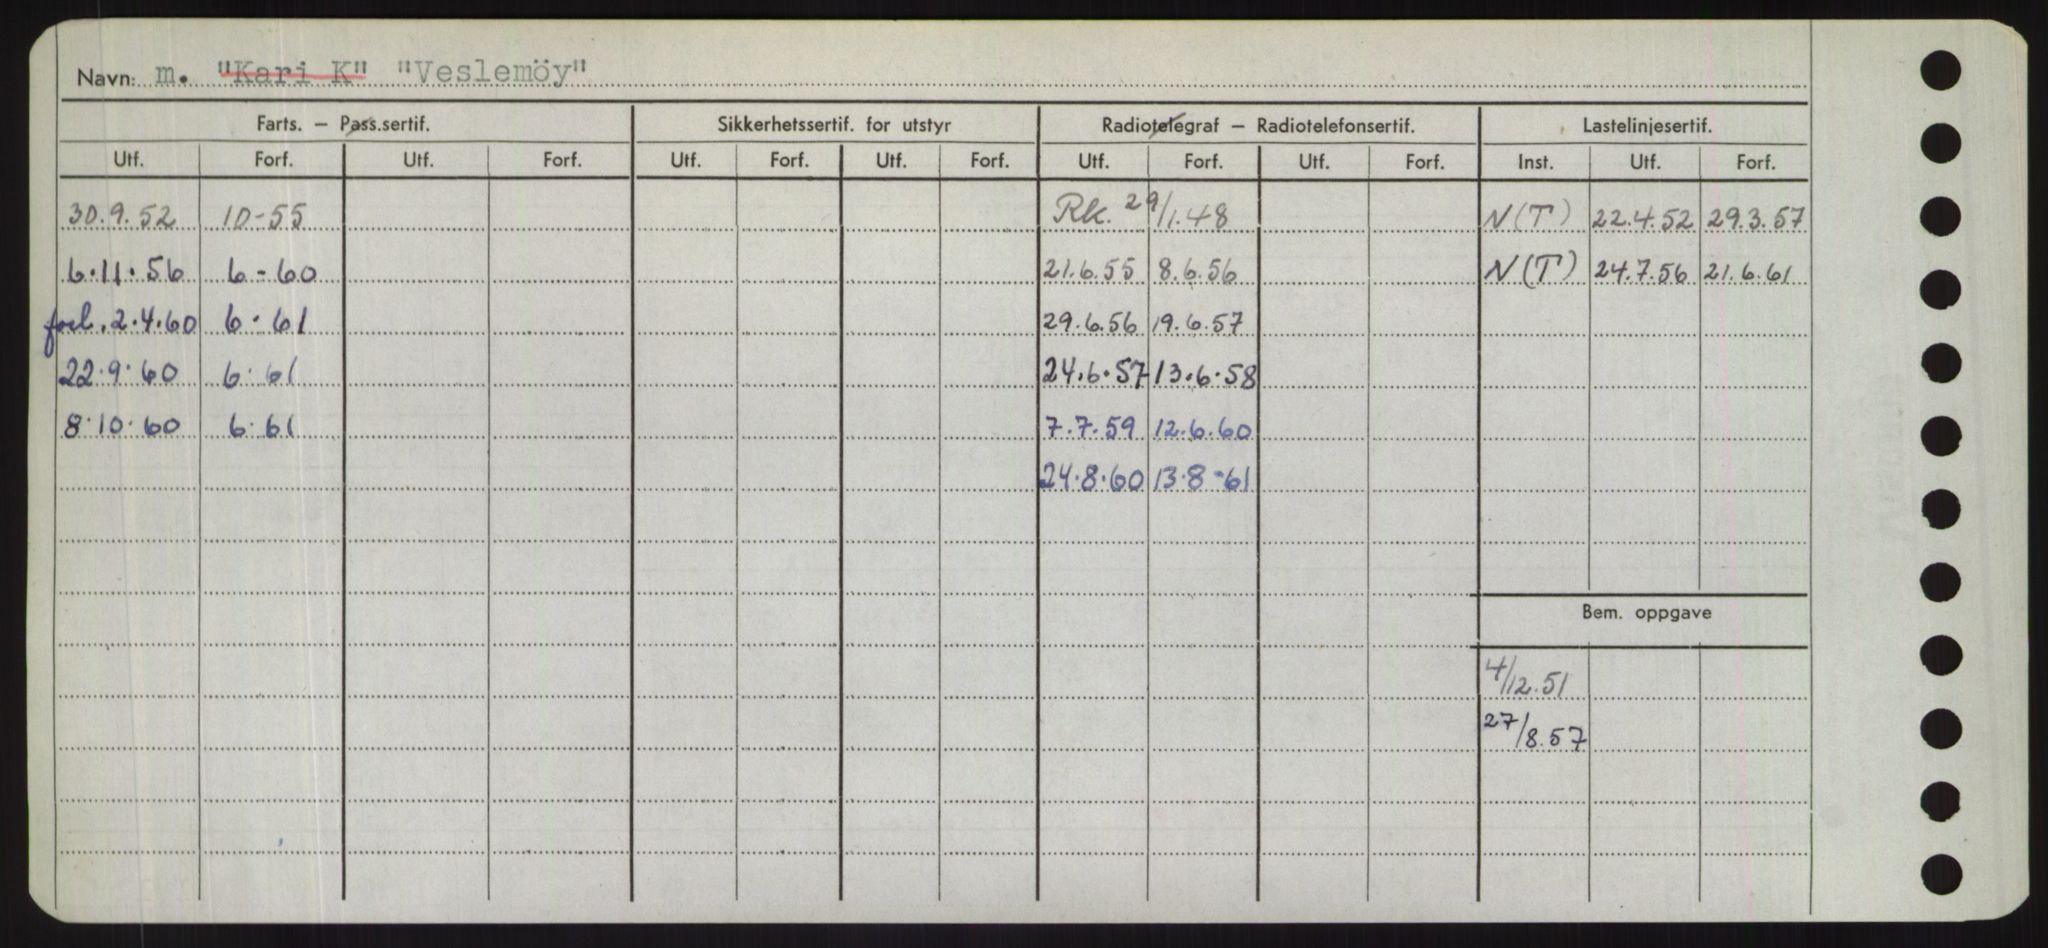 Navn: m. "Kari K" "Veslemöy"
Farts. – Pass.sertif. Sikkerhetssertif. for utstyr Radiotelegraf – Radiotelefonsertif. Lastelinjesertif.
Utf. Forf. Utf. Forf. Utf. Forf. Utf. Forf. Utf. Forf. Utf. Forf. Inst. Utf. Forf.
30.9.52 10-55 Rk. 29/1.48 N(T) 22.4.52 29.3.57
6.11.56 6-60 21.6.55 8.6.56 N(T) 24.7.56 21.6.61
forl. 2.4.60 6.61 29.6.56 19.6.57
22.9.60 6.61 24.6.57 13.6.58
8.10.60 6.61 7.7.59 12.6.60
24.8.60 13.8-61
Bem. oppgave
4/12.51
27/8.57